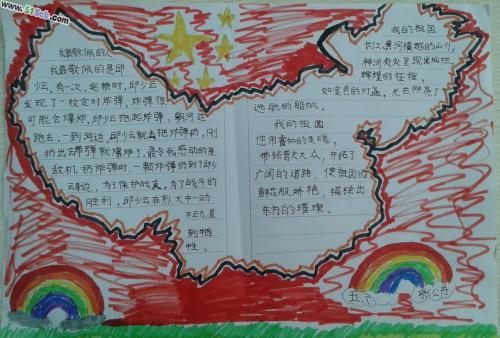 www.51Scb.com
我最敬佩的人
我最敬佩的是邱
少云,有一次,运粮时,邱少云
发现了一枚定时炸弹,炸弹很
可能会爆炸,邱少云抱起炸弹,朝河边
跑去,一到河边,邱少云就把炸弹扔,刚
扔出去弹就爆炸了。最令我感动的是
敌机扔炸弹时,一颗炸弹扔到了邱少
云身边,为了保护战友,为了战斗的
胜利,邱少云在烈火中一动
不动,直
到牺
牲。
我的祖国
长江、黄河横越的山川,
神州处处呈现出灿烂
辉煌的征程,
如金色的灯盏,光芒照亮了
远航的船帆。
我的祖国
您用睿知的灵魂,
带领普天大众,开拓了
广阔的道路,使祖国的
鲜花般娇艳,描绘出
东方的璀璨。
五
张公